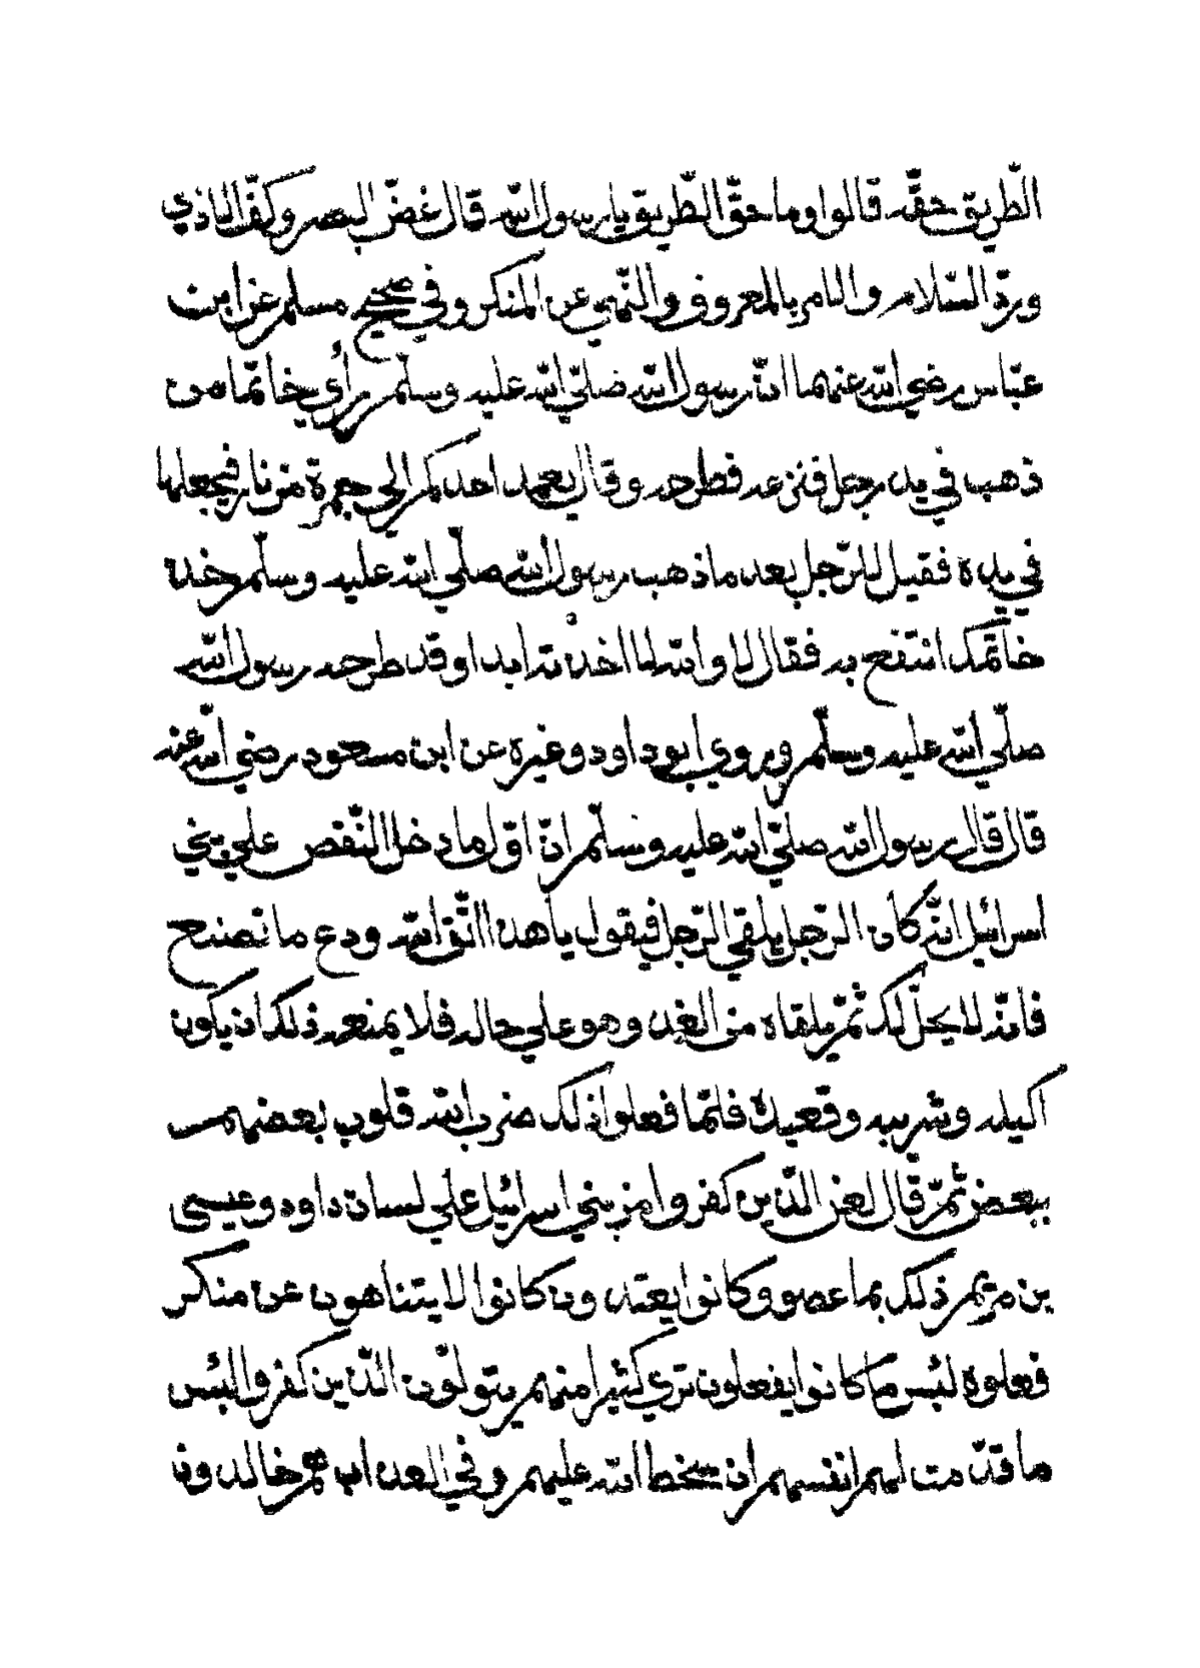 الطّريق حقّه قالوا وما حقّ الطّريق يا رسول الله قال غضّ البصر وكفّ الاذي
وردّ السّلام والامر بالمعروف والنّهي عن المنكر وفي صحيح مسلم عن ابن
عبّاس رضي الله عنهما انّ رسول الله صلّي الله عليه وسلّم رأي خاتمّا من
ذهب في يد رجل فنزعه فطرحه وقال يعمد احدكم الي جمرة من نار فيجعلها
في يده فقيل للرّجل بعد ما ذهب رسول الله صلّي الله عليه وسلّم خذ
خاتمك انتفع به فقال لا والله لا اخذته ابدا وقد طرحه رسول الله
صلّي الله عليه وسلّم وروي ابو داود وغيره عن ابن مسعود رضي الله عنه
قال قال رسول الله صلّي الله عليه وسلّم انّ اوّل ما دخل النّقص علي بني
اسرائيل انّه كان الرّجل يلقي الرّجل فيقول يا هذا اتّق الله ودع ما تصنع
فانّه لا يحلّ لك ثمّ يلقاه من الغد وهو علي حاله فلا يمنعه ذلك ان يكون
اكيله وشريبه وقعيده فلمّا فعلوا ذلك ضرب الله قلوب بعضهم
ببعض ثمّ قال لعن الّذين كفروا من بني اسرائيل علي لسان داود وعيسي
بن مريم ذلك بما عصو وكانوا يعتدون كانوا لا يتناهون عن منكر
فعلوه لبئس ما كانوا يفعلون تري كثيرا منهم يتولّون الّذين كفروا لبئس
ما قدّمت لهم انفسهم ان سخط الله عليهم وفي العذاب هم خالدون